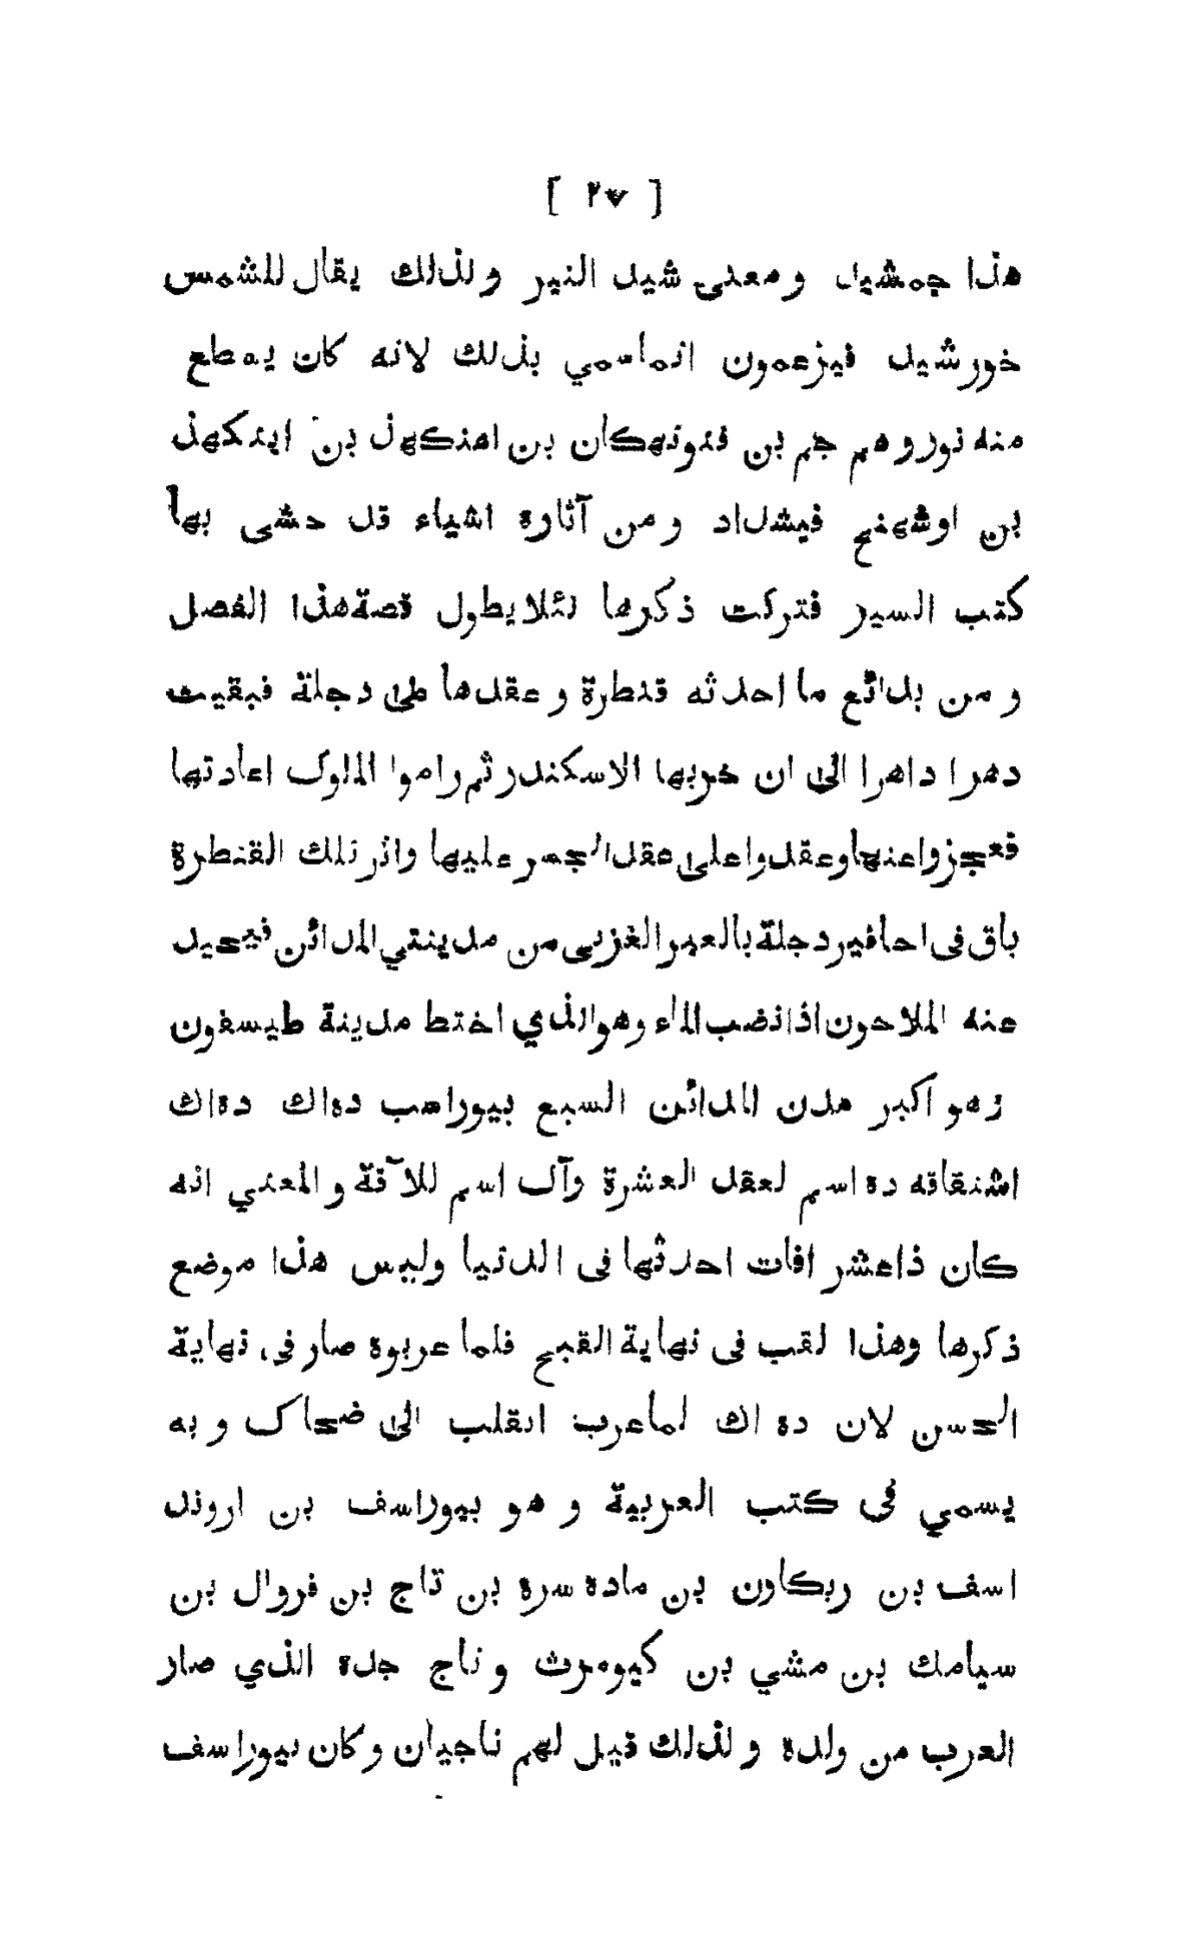 [ ٢٧ ]
هذا جمشيد ومعنى شيد النير ولذلك يقال للشمس
خورشيد فيزعمون انماسمي بذلك لانه كان يسطع
منه نور وهم جم بن فنونهكان بن اهنكهذ بن اينكهذ
بن اوشهنج فيشداد ومن آثاره اشياء قد حشى بها
كتب السير فتركت ذكرها لئلا يطول قصة هذا الفصل
و من بدائع ما احدثه قنطرة و عقدها على دجلة فبقيت
دهرا داهرا الى ان خربها الاسكندر ثم راموا الملوك اعادتها
فعجزوا عنها وعقدوا على عقد الجسر عليها واثر تلك القنطرة
باق فى احافير دجلة بالعبر الغزبى من مدينتي المدائن فيحيد
عنه الملاحون اذا نضب الماء وهو الذي اختط مدينة طيسفون
وهو اكبر مدن المدائن السبع بيوراسب ده اك ده اك
اشتقاقه ده اسم لعقد العشرة وآك اسم للآفة و المعني انه
كان ذا عشر افات احدثها فى الدنيا وليس هذا موضع
ذكرها وهذا لقب فى نهاية القبح فلما عربوه صار فى نهاية
الحسن لان ده اك لما عرب انقلب الى ضحاک و به
يسمي فى كتب العربية و هو بيوراسف بن اروند
اسف بن ريكاون بن ماده سره بن تاج بن فروال بن
سيامك بن مشي بن كيومرث و تاج جده الذي صار
العرب من ولده و لذلك قيل لهم تاجيان وكان بيوراسف